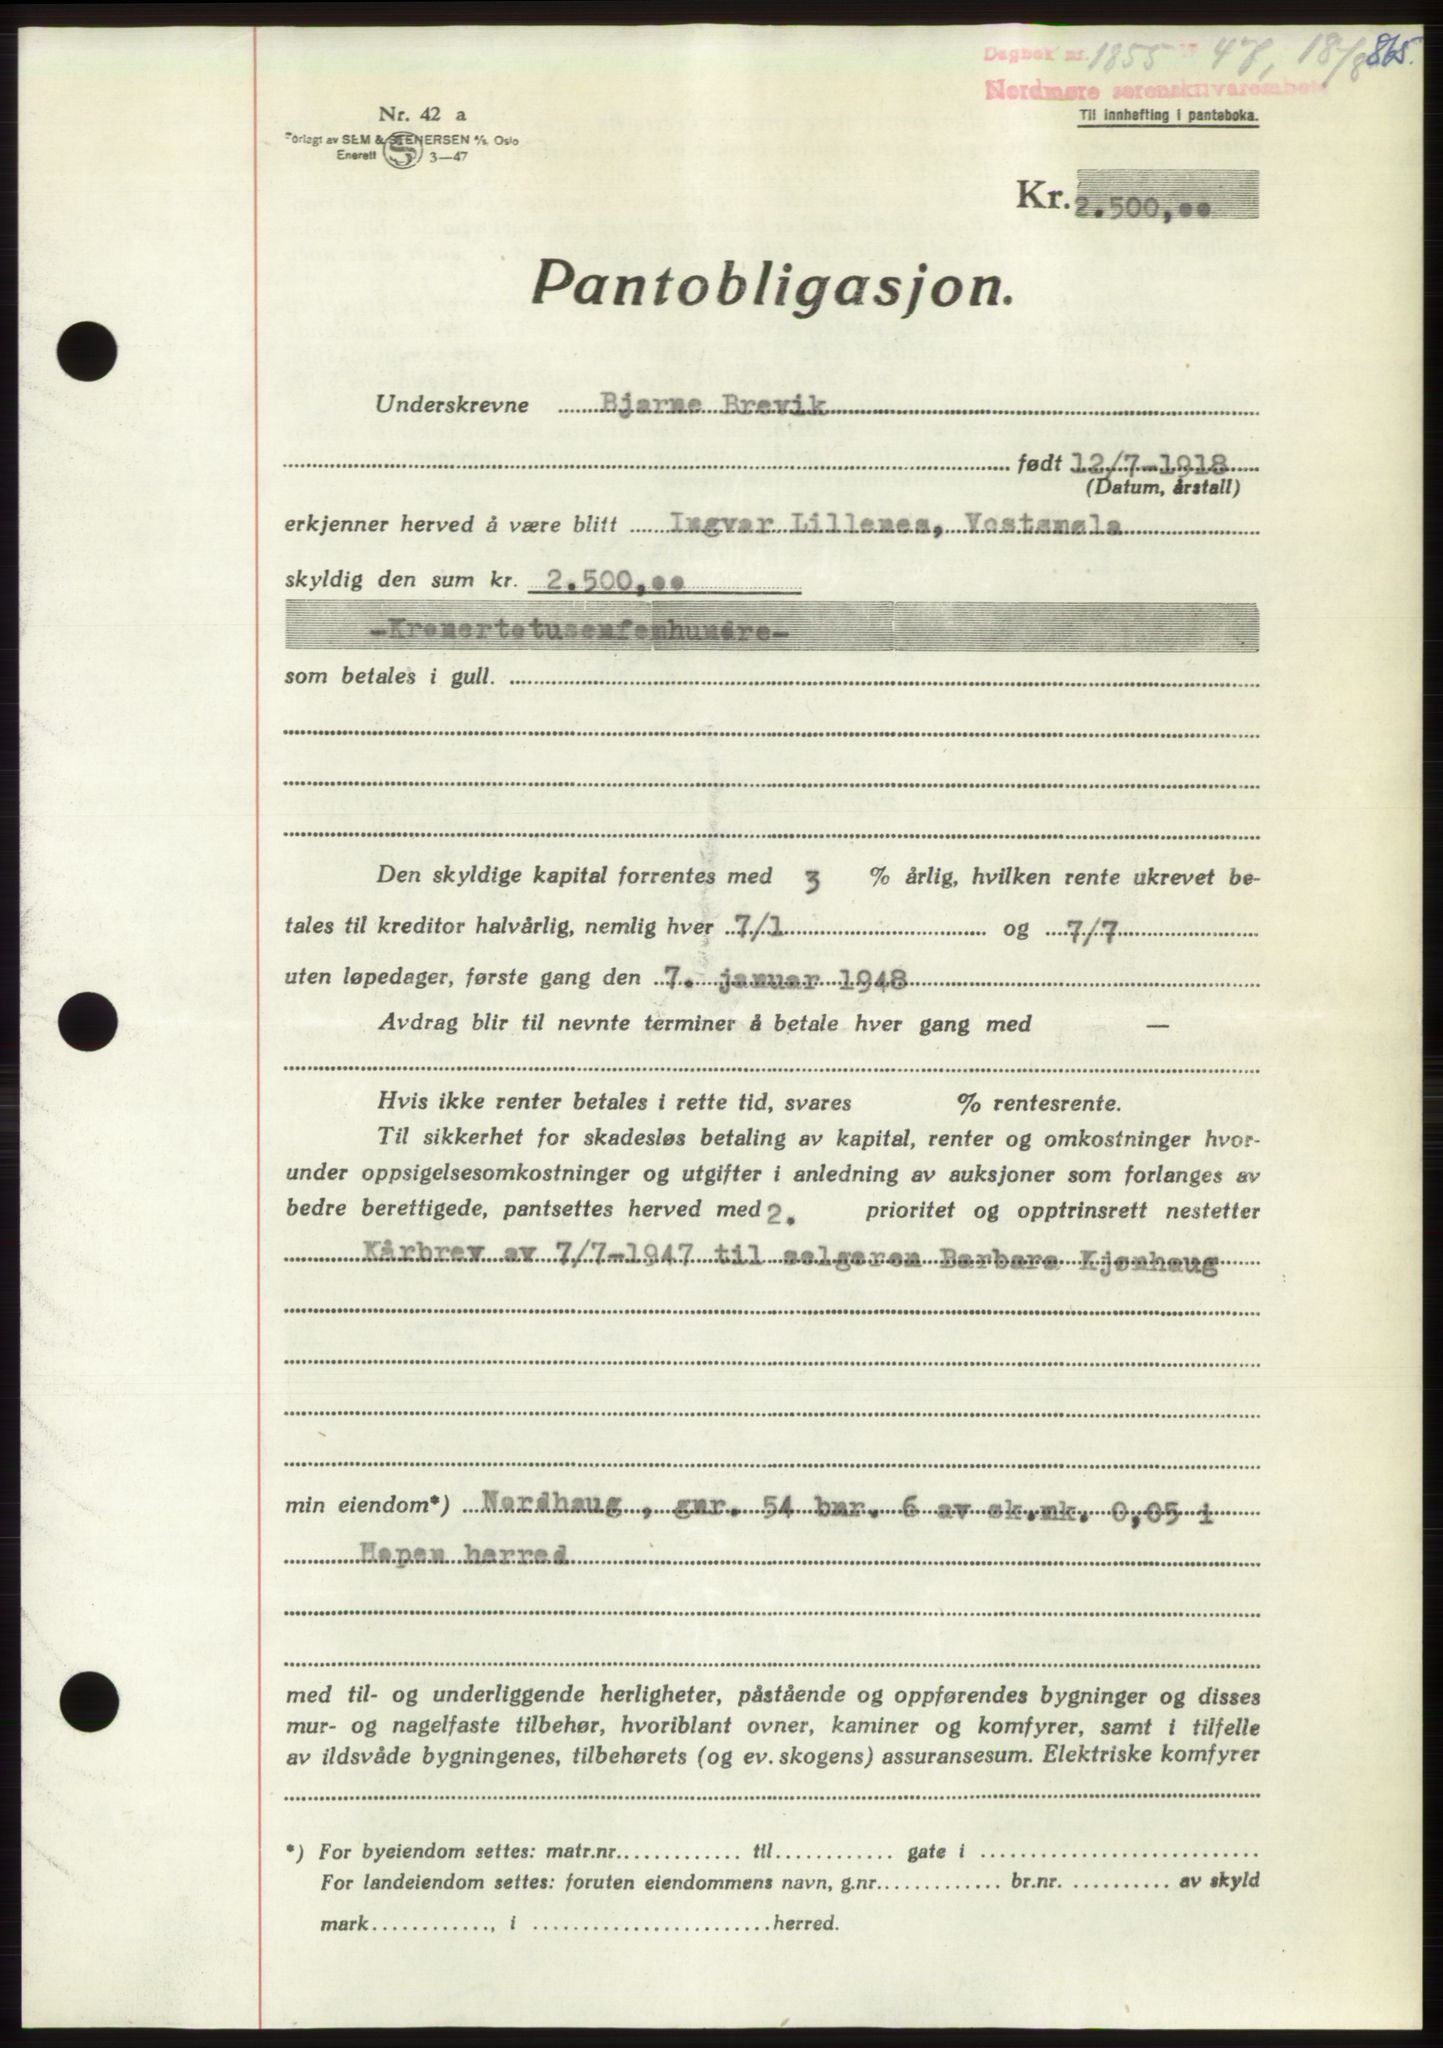 Dagbok nr. 1855 47, 18/8 865.
Nordmøre sorenskriverembete
Nr. 42 a
Til innhefting i panteboka.
Forlagt av SEM & STENERSEN A/S, Oslo
Enerett 3—47
Kr. 2.500,oo
Pantobligasjon.
Underskrevne Bjarne Brevik
født 12/7-1918
(Datum, årstall)
erkjenner herved å være blitt Ingvar Lillenes, Vestsmøla
skyldig den sum kr. 2.500,oo
-Kronertotusenfemhundre-
som betales i gull.
Den skyldige kapital forrentes med 3 % årlig, hvilken rente ukrevet be-
tales til kreditor halvårlig, nemlig hver 7/1 og 7/7
uten løpedager, første gang den 7. januar 1948
Avdrag blir til nevnte terminer å betale hver gang med —
Hvis ikke renter betales i rette tid, svares % rentesrente.
Til sikkerhet for skadesløs betaling av kapital, renter og omkostninger hvor-
under oppsigelsesomkostninger og utgifter i anledning av auksjoner som forlanges av
bedre berettigede, pantsettes herved med 2. prioritet og opptrinsrett nestetter
Kårbrev av 7/7-1947 til selgeren Barbara Kjønhaug
min eiendom*) Nordhaug, gnr. 54 bnr. 6 av sk.mk. 0,05 i
Hopen herred
med til- og underliggende herligheter, påstående og oppførendes bygninger og disses
mur- og nagelfaste tilbehør, hvoriblant ovner, kaminer og komfyrer, samt i tilfelle
av ildsvåde bygningenes, tilbehørets (og ev. skogens) assuransesum. Elektriske komfyrer
*) For byeiendom settes: matr.nr. til gate i
For landeiendom settes: foruten eiendommens navn, g.nr. br.nr. av skyld
mark , i herred.